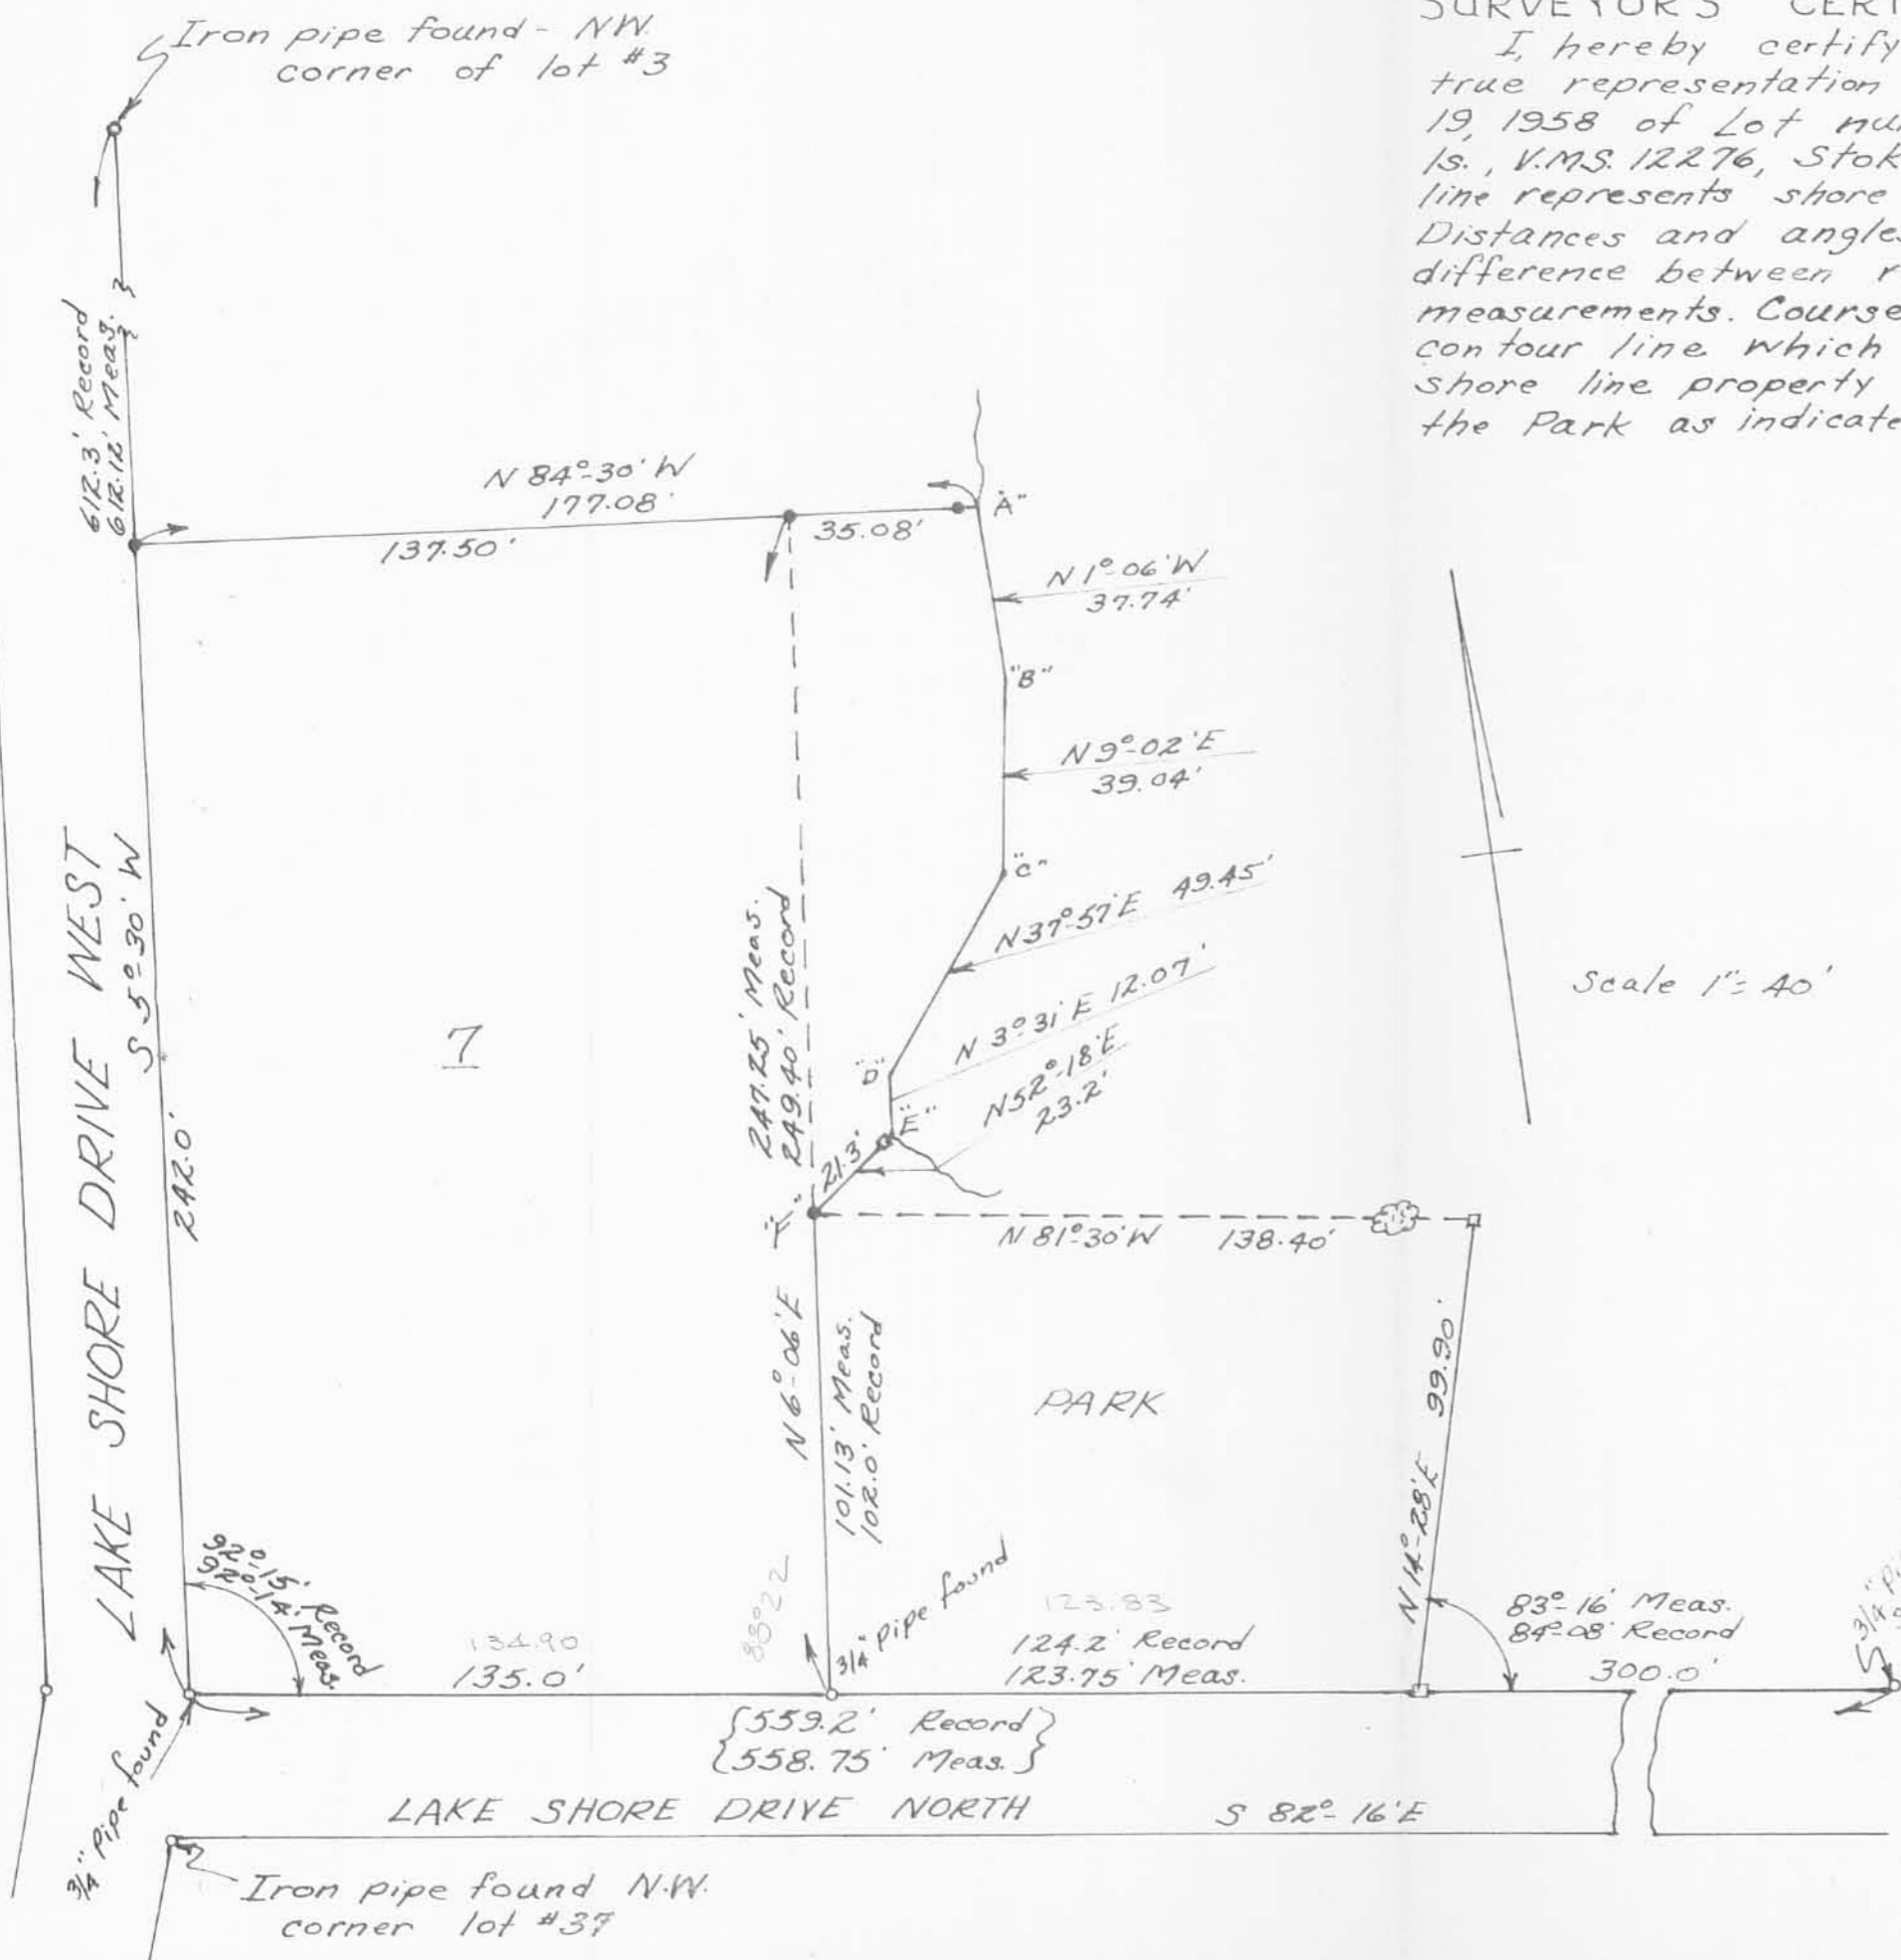 Iron pipe found - NW.
corner of lot #3
SURVEYOR'S
I, hereby certify
true representation
19, 1958 of Lot
1s., V.M.S. 12276,
line represents shore
Distances and
difference between
measurements.
contour line which
shore line property
the Park as
612.3' Record
612.12' Meas.
N 84°-30' W
177.08'
137.50'
35.08'
"A"
N 1°-06' W
37.74'
"B"
N 9°-02' E
39.04'
"C"
N 37°-57' E 49.45'
N 3°31' E 12.07'
"D"
N 52°-18' E
23.2'
"E"
21.3'
247.25' Meas.
249.40' Record
Scale 1" = 40'
LAKE SHORE DRIVE WEST
S 5°-30' W
242.0'
7
N 81°-30' W 138.40'
N 6°-06' E
101.13' Meas.
102.0' Record
PARK
N 14°-28' E 99.90'
92°-15' Record
92°-14' Meas.
134.90
135.0'
88°22
3/4" pipe found
123.83
124.2' Record
123.75' Meas.
83°-16' Meas.
84°-08' Record
300.0'
3/4"
{559.2' Record}
{558.75' Meas.}
3/4" Pipe found
LAKE SHORE DRIVE NORTH S 82°-16' E
Iron pipe found N.W.
corner lot #37